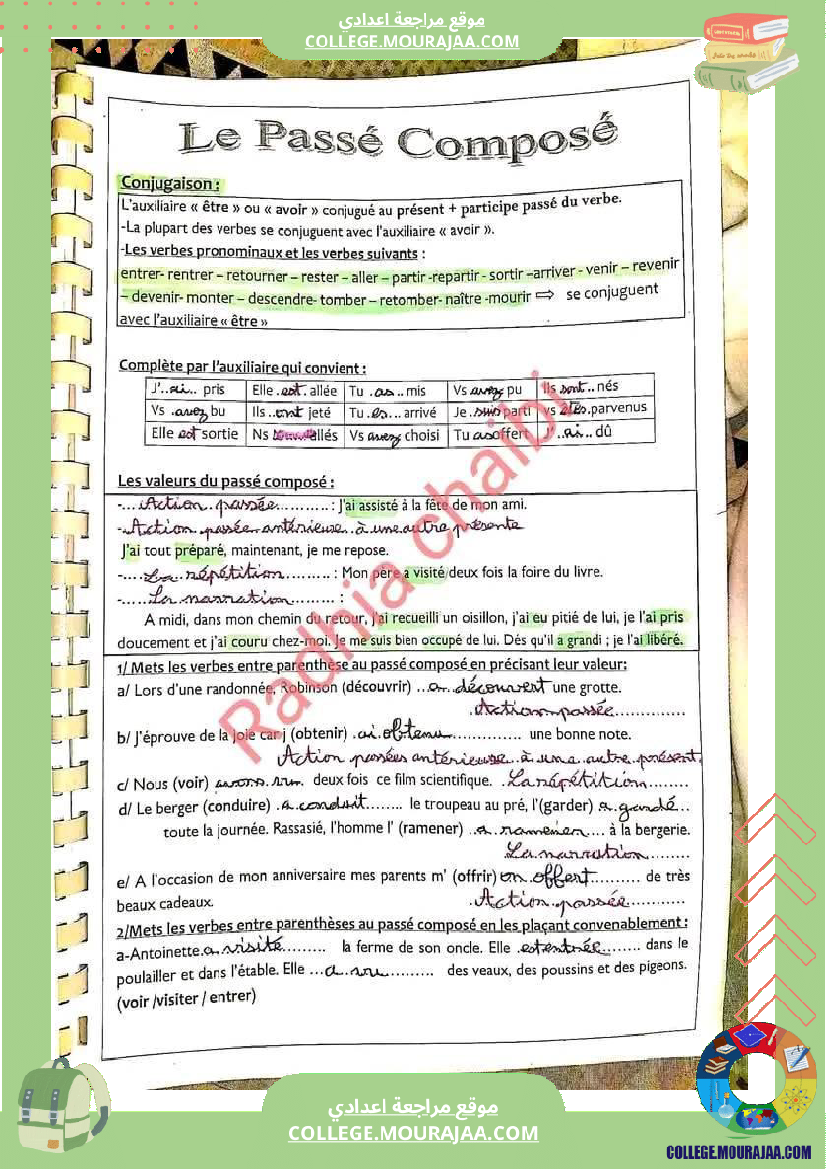 موقع مراجعة اعدادي
COLLEGE.MOURAJAA.COM
Le Passé Composé
Conjugaison :
L'auxiliaire « être » ou « avoir » conjugué au présent + participe passé du verbe.
-La plupart des verbes se conjuguent avec l'auxiliaire « avoir ».
-Les verbes pronominaux et les verbes suivants :
entrer- rentrer – retourner – rester – aller – partir -repartir - sortir –arriver - venir – revenir
– devenir- monter – descendre- tomber – retomber- naître -mourir ⇒ se conjuguent
avec l'auxiliaire « être »
Complète par l'auxiliaire qui convient :
J'..ai... pris Elle .est. allée Tu .as...mis Vs avez pu Ils sont..nés
Vs .avez bu Ils ..ont jeté Tu .es....arrivé Je .suis parti vs êtes.parvenus
Elle est sortie Ns allés Vs avez choisi Tu as offert J' ..ai... dû
Les valeurs du passé composé :
-....Action..passée........... : J'ai assisté à la fête de mon ami.
-Action passée antérieure..à une autre présente
J'ai tout préparé, maintenant, je me repose.
-....La répétition......... : Mon père a visité deux fois la foire du livre.
-......La narration......... :
A midi, dans mon chemin du retour, j'ai recueilli un oisillon, j'ai eu pitié de lui, je l'ai pris
doucement et j'ai couru chez-moi. Je me suis bien occupé de lui. Dés qu'il a grandi ; je l'ai libéré.
1/ Mets les verbes entre parenthèse au passé composé en précisant leur valeur:
a/ Lors d'une randonnée, Robinson (découvrir) ...a..découvert une grotte.
.Action passée..............
b/ J'éprouve de la joie car j (obtenir) .ai.obtenu.............. une bonne note.
Action passées antérieuse..à une autre présent.
c/ Nous (voir) avons vu. deux fois ce film scientifique. .La répétition........
d/ Le berger (conduire) .a conduit........ le troupeau au pré, l'(garder) a gardé...
toute la journée. Rassasié, l'homme l' (ramener) ..a ramener.... à la bergerie.
La narration.........
e/ A l'occasion de mon anniversaire mes parents m' (offrir) on offert.......... de très
beaux cadeaux. .Action passée............
2/Mets les verbes entre parenthèses au passé composé en les plaçant convenablement :
a-Antoinette.a visité......... la ferme de son oncle. Elle .est entrée........ dans le
poulailler et dans l'étable. Elle ...a vu........... des veaux, des poussins et des pigeons.
(voir /visiter / entrer)
Radhia chaibi
موقع مراجعة اعدادي
COLLEGE.MOURAJAA.COM
COLLEGE.MOURAJAA.COM